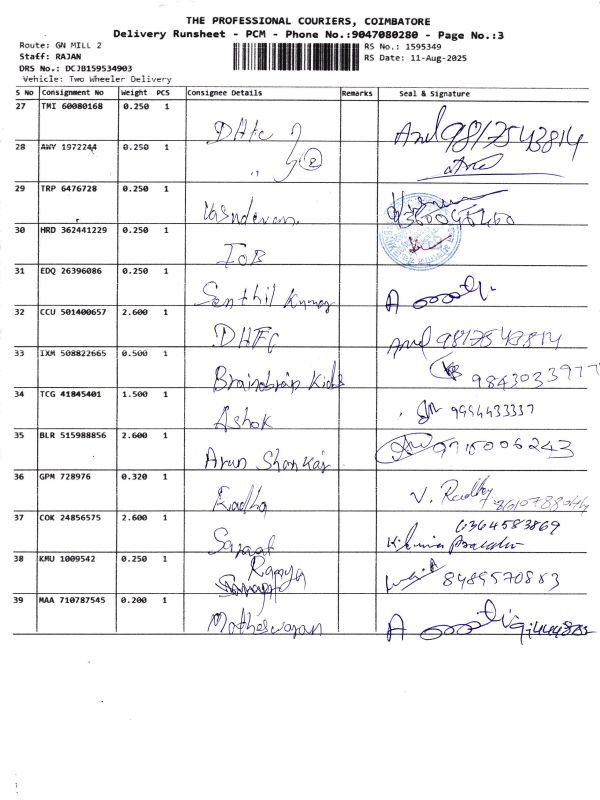 THE PROFESSIONAL COURIERS, COIMBATORE
Delivery Runsheet - PCM - Phone No.:9047080280 - Page No.:3
Route: GN MILL 2
RS No.: 1595349
Staff: RAJAN
RS Date: 11-Aug-2025
DRS No.: DCJB159534903
Vehicle: Two Wheeler Delivery
S No Consignment No Weight PCS Consignee Details Remarks Seal & Signature
27 TMI 60080168 0.250 1 DHFC 9817543814
28 AWY 1972244 0.250 1 ,, 2
29 TRP 6476728 0.250 1 Vasudevan
30 HRD 362441229 0.250 1 IOB
31 EDQ 26396086 0.250 1 Senthil Kumar
32 CCU 501400657 2.600 1 DHFC 9817543814
33 IXM 508822665 0.500 1 Brainobrain Kids 9843033977
34 TCG 41845401 1.500 1 Ashok 9994433337
35 BLR 515988856 2.600 1 Arun Shankar 9715006243
36 GPM 728976 0.320 1 Radha V. Radha
37 COK 24856575 2.600 1 6364583869
38 KMU 1009542 0.250 1 Ramya 8489570883
39 MAA 710787545 0.200 1 Matheswaran